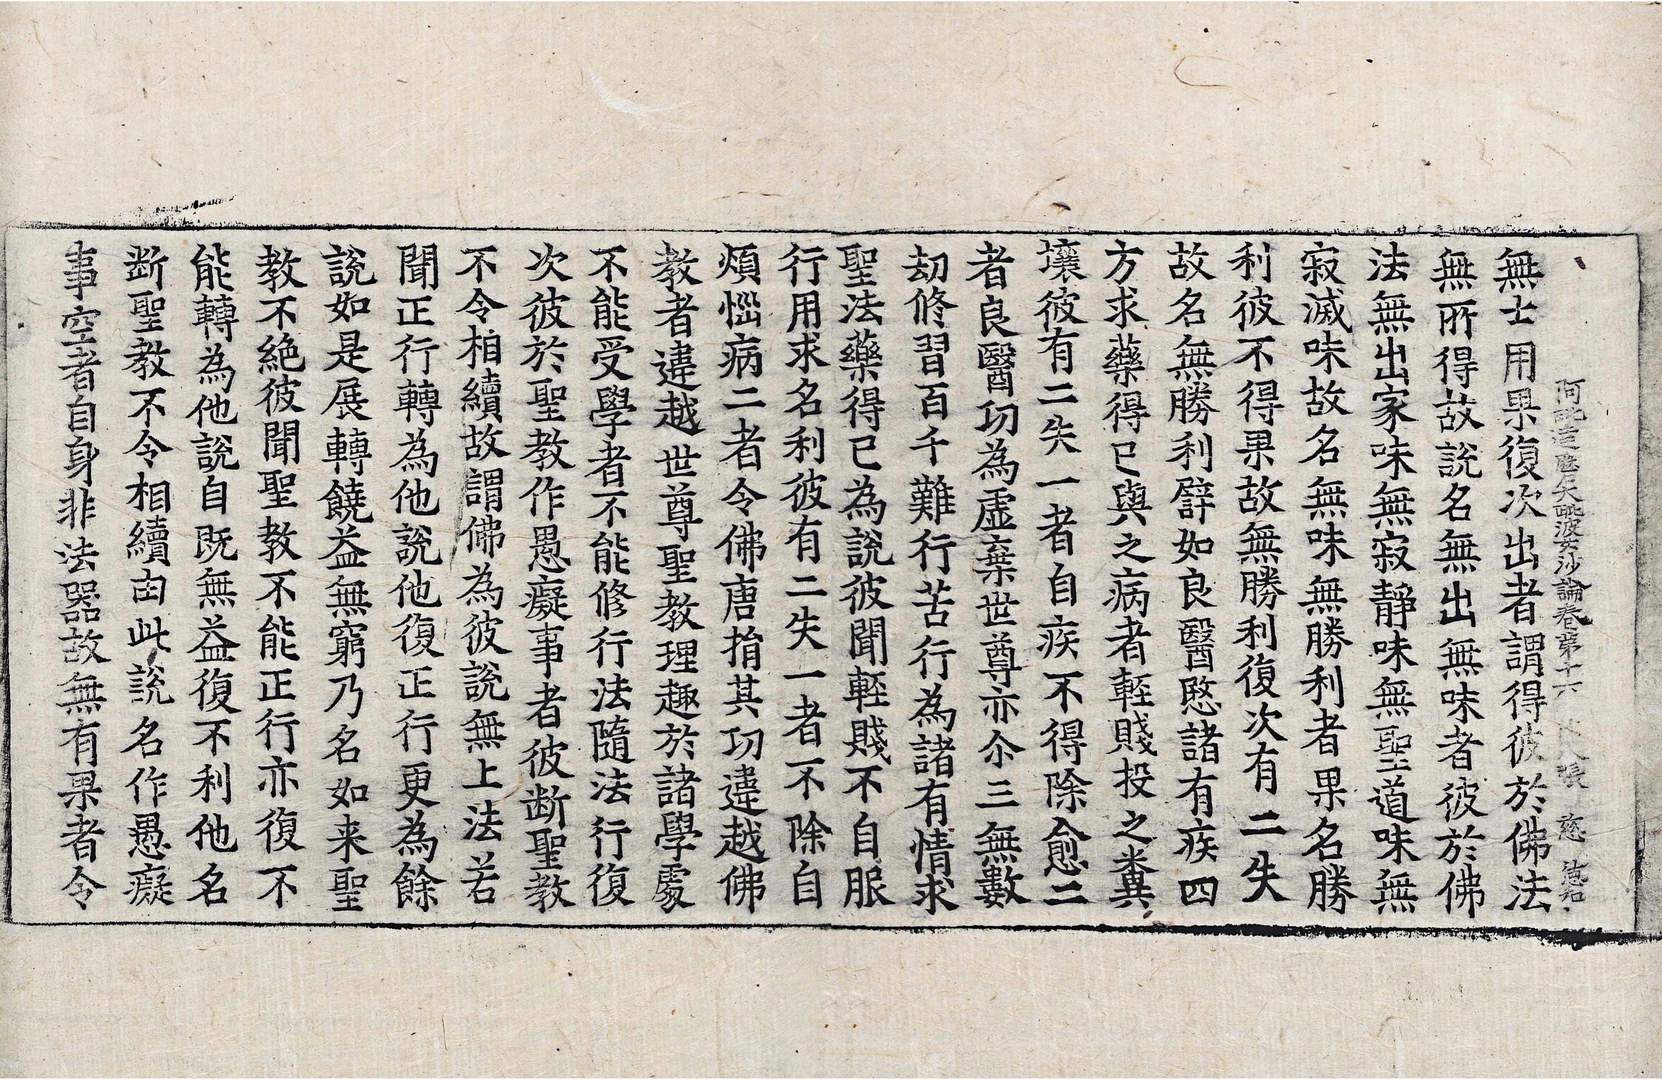 阿毗達磨大毗婆沙論卷第十六 張 慈
無士用果復次出者謂得彼於佛法
無所得故說名無出無味者彼於佛
法無出家味無寂靜味無聖道味無
寂滅味故名無味無勝利者果名勝
利彼不得果故無勝利復次有二失
故名無勝利譬如良醫愍諸有疾四
方求藥得已與之病者輕賤投之糞
壤彼有二失一者自疾不得除愈二
者良醫功為虛棄世尊亦尒三無數
劫修習百千難行苦行為諸有情求
聖法藥得已為說彼聞輕賤不自服
行用求名利彼有二失一者不除自
煩惱病二者令佛唐捐其功違越佛
教者違越世尊聖教理趣於諸學處
不能受學者不能修行法隨法行復
次彼於聖教作愚癡事者彼断聖教
不令相續故謂佛為彼說無上法若
聞正行轉為他說他復正行更為餘
說如是展轉饒益無窮乃名如来聖
教不絕彼聞聖教不能正行亦復不
能轉為他說自既無益復不利他名
断聖教不令相續由此說名作愚癡
事空者自身非法器故無有果者令